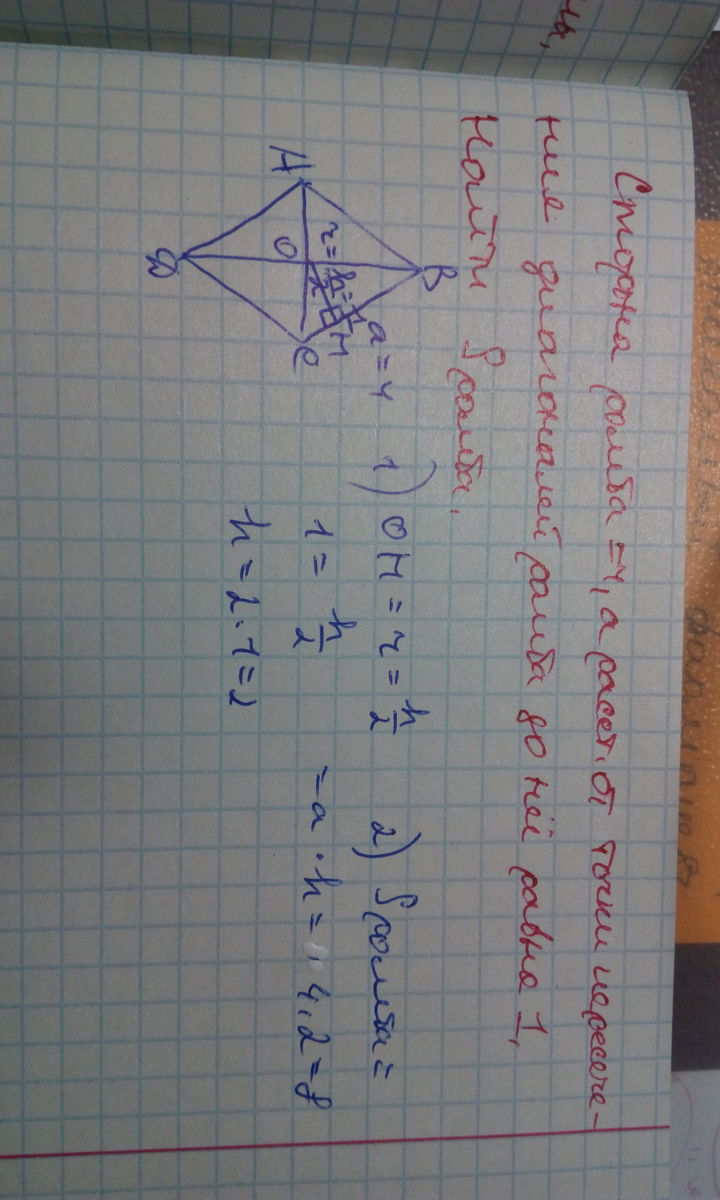 Сторона ромба = 4, а расст. от точки пересече-
ния диагоналей ромба до неё равно 1.
Найти S ромба.
B
a = 4
A
O
r = h = 1
2
M
C
D
1) OM = r = h/2
1 = h/2
h = 2 · 1 = 2
2) S ромба =
= a · h = 4 · 2 = 8